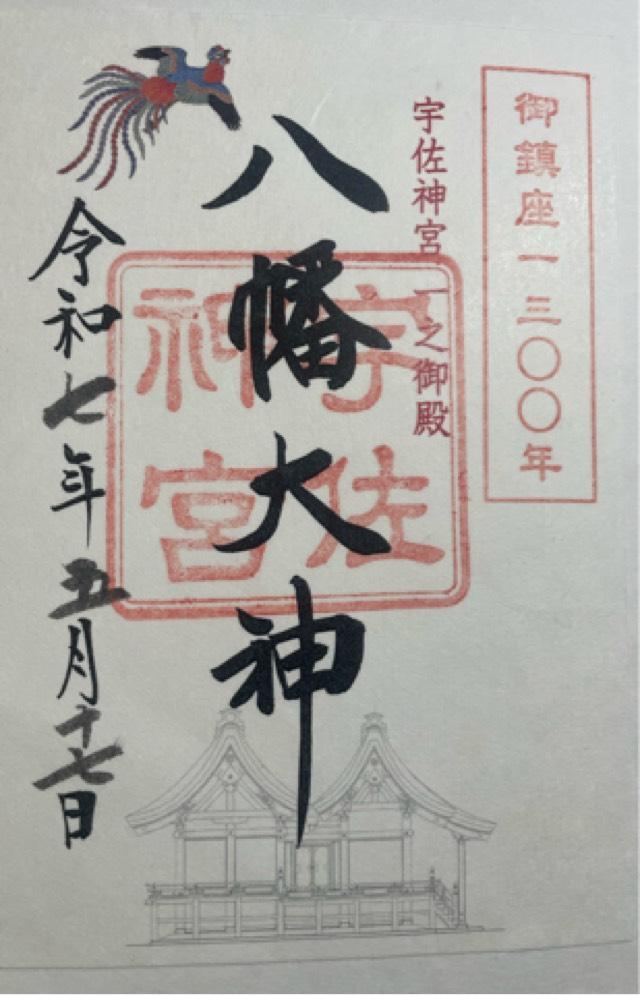 御鎮座一三〇〇年
宇佐神宮一之御殿
八幡大神
宇佐
神宮
令和七年五月十七日